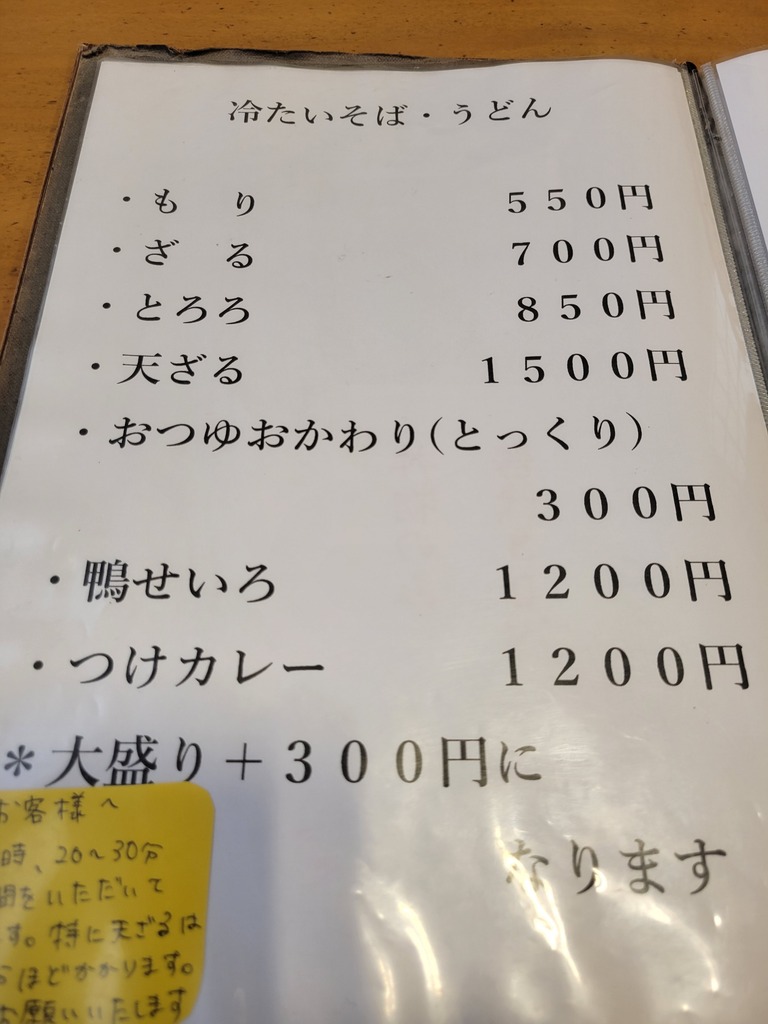 冷たいそば・うどん
・も　り　　５５０円
・ざ　る　　７００円
・とろろ　　８５０円
・天ざる　　１５００円
・おつゆおかわり(とっくり)
３００円
・鴨せいろ　　１２００円
・つけカレー　　１２００円
＊大盛り＋３００円に
なります
お客様へ
時、20〜30分
間をいただいて
す。特に天ざるは
ほどかかります。
お願いいたします